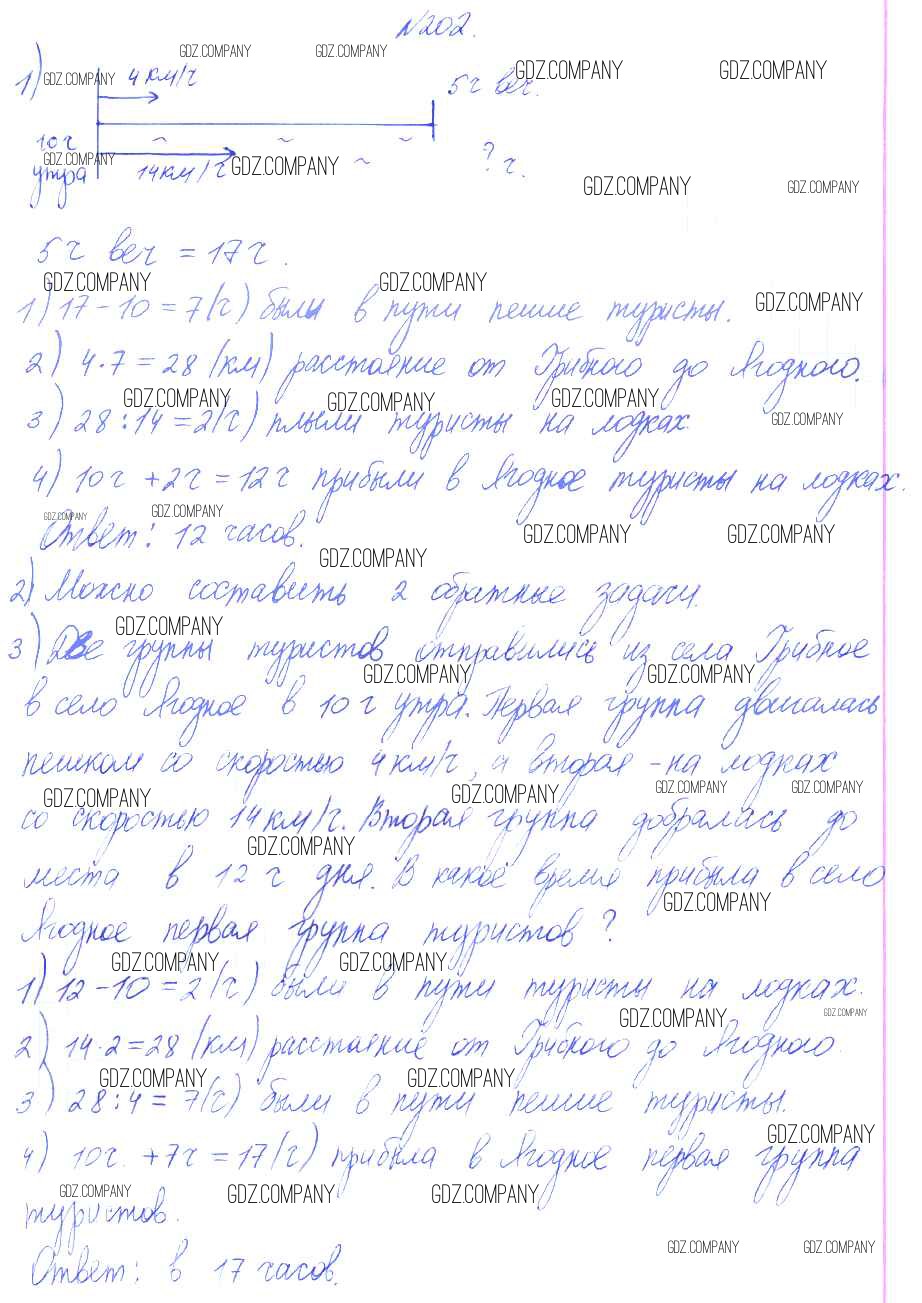 №202.
1) 4 км/ч 5ч веч.
10ч
утра 14 км/ч ? ч.
5ч веч = 17ч.
1) 17 - 10 = 7 (ч) были в пути пешие туристы.
2) 4 · 7 = 28 (км) расстояние от Грибного до Ягодного.
3) 28 : 14 = 2 (ч) плыли туристы на лодках
4) 10ч + 2ч = 12ч прибыли в Ягодное туристы на лодках.
Ответ: 12 часов.
2) Можно составить 2 обратные задачи.
3) Две группы туристов отправились из села Грибное
в село Ягодное в 10 ч утра. Первая группа двигалась
пешком со скоростью 4 км/ч, а вторая - на лодках
со скоростью 14 км/ч. Вторая группа добралась до
места в 12 ч дня. В какое время прибыла в село
Ягодное первая группа туристов?
1) 12 - 10 = 2 (ч) были в пути туристы на лодках.
2) 14 · 2 = 28 (км) расстояние от Грибного до Ягодного.
3) 28 : 4 = 7 (ч) были в пути пешие туристы.
4) 10ч. + 7ч = 17 (ч) прибыла в Ягодное первая группа
туристов.
Ответ: в 17 часов.
GDZ.COMPANY